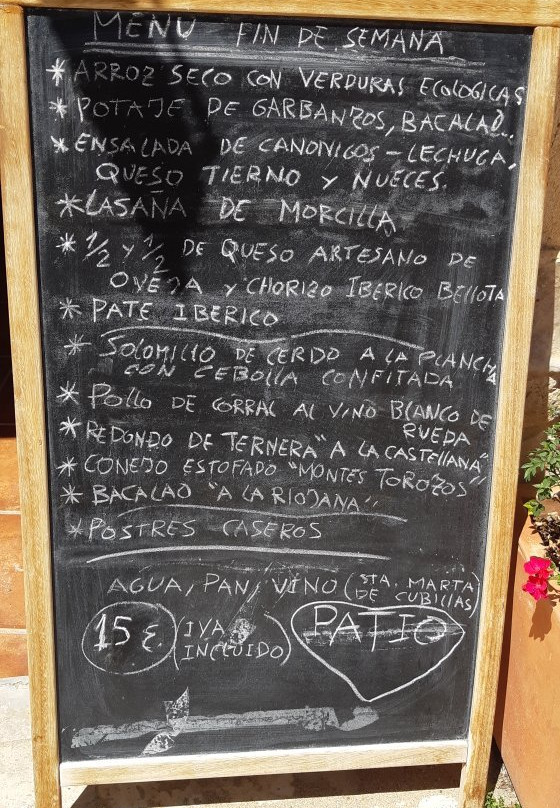 MENU FIN DE SEMANA
* ARROZ SECO CON VERDURAS ECOLOGICAS
* POTAJE DE GARBANZOS, BACALAO...
* ENSALADA DE CANONIGOS - LECHUGA,
QUESO TIERNO Y NUECES.
* LASAÑA DE MORCILLA
* 1/2 Y 1/2 DE QUESO ARTESANO DE
OVEJA Y CHORIZO IBERICO BELLOTA
* PATE IBERICO
* SOLOMILLO DE CERDO A LA PLANCHA
CON CEBOLLA CONFITADA
* POLLO DE CORRAL AL VINO BLANCO DE
RUEDA
* REDONDO DE TERNERA "A LA CASTELLANA"
* CONEJO ESTOFADO "MONTES TOROZOS"
* BACALAO "A LA RIOJANA"
* POSTRES CASEROS
AGUA, PAN, VINO (STA. MARTA
DE CUBILLAS)
15 € (IVA
INCLUIDO)
PATIO